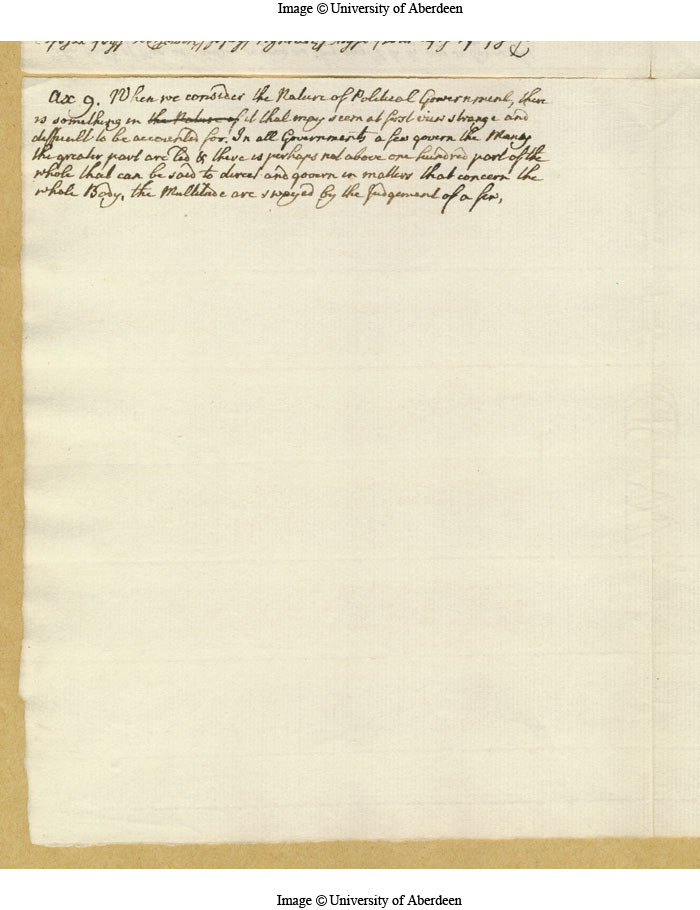 Image © University of Aberdeen
ax 9. When we consider the Nature of Political Government, there
is something in the Nature of it that may seem at first view strange and
difficult to be accounted for. In all Governments a few govern the Many
the greater part are led & there is perhaps not above one hundred part of the
whole that can be said to direct and govern in matters that concern the
whole Body, the Multitude are swayed by the Judgement of a few,
Image © University of Aberdeen